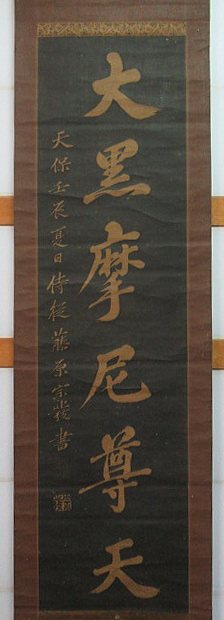 大黒摩尼尊天
天保壬辰夏日侍従藤原定發書